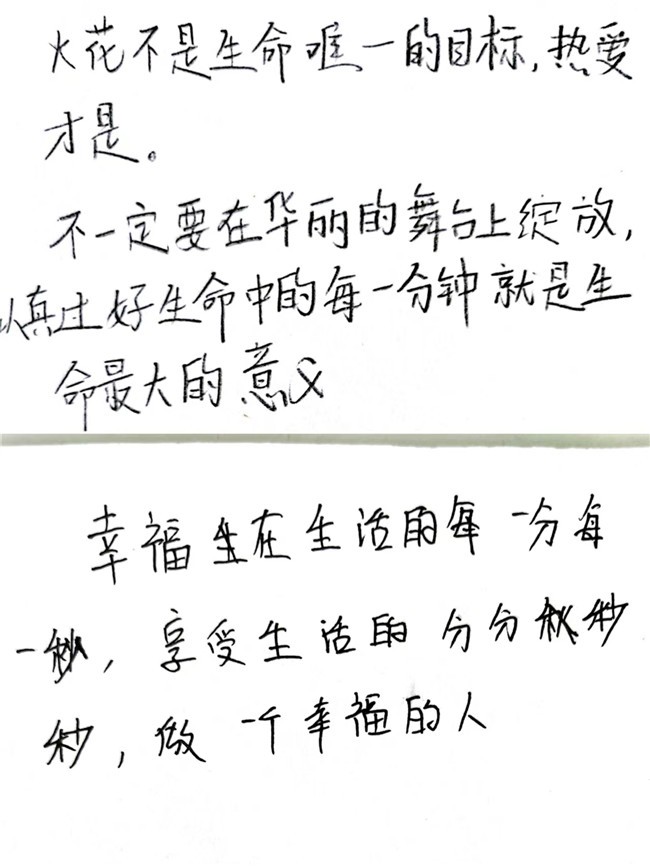 火花不是生命唯一的目标,热爱
才是。
不一定要在华丽的舞台上绽放,
认真过好生命中的每一分钟就是生
命最大的意义
幸福生在生活的每一分每
一秒,享受生活的分分秒
秒,做一个幸福的人